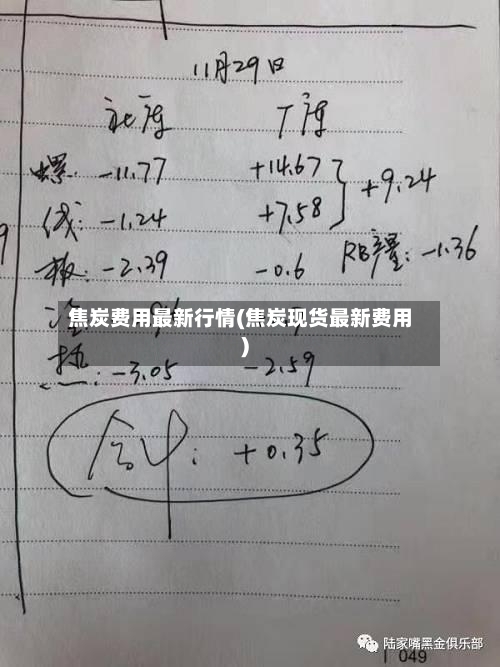 11月29日
社库 厂库
螺: -11.77 +14.67 } +9.24
线: -1.24 +7.58
板: -2.39 -0.6 RB产量: -1.36
焦炭费用最新行情(焦炭现货最新费用
)
热: -3.05 -2.59
合计: +0.35
陆家嘴黑金俱乐部
049